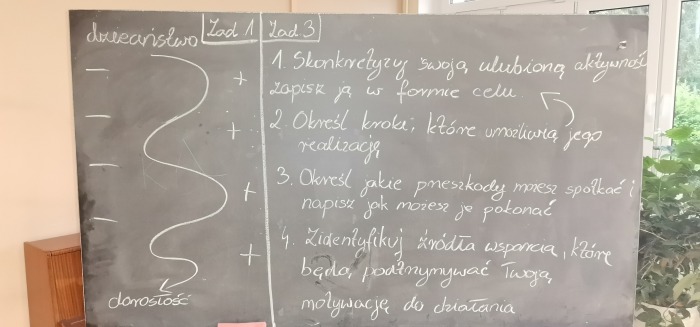 dzieciństwo
Zad 1
- +
- +
- +
- +
dorosłość
Zad 3
1. Skonkretyzuj swoją ulubioną aktywność
zapisz ją w formie celu.
2 Określ kroki, które umożliwią jego
realizację
3. Określ jakie przeszkody możesz spotkać i
napisz jak możesz je pokonać
4. Zidentyfikuj źródła wsparcia, które
będą podtrzymywać Twoją
motywację do działania